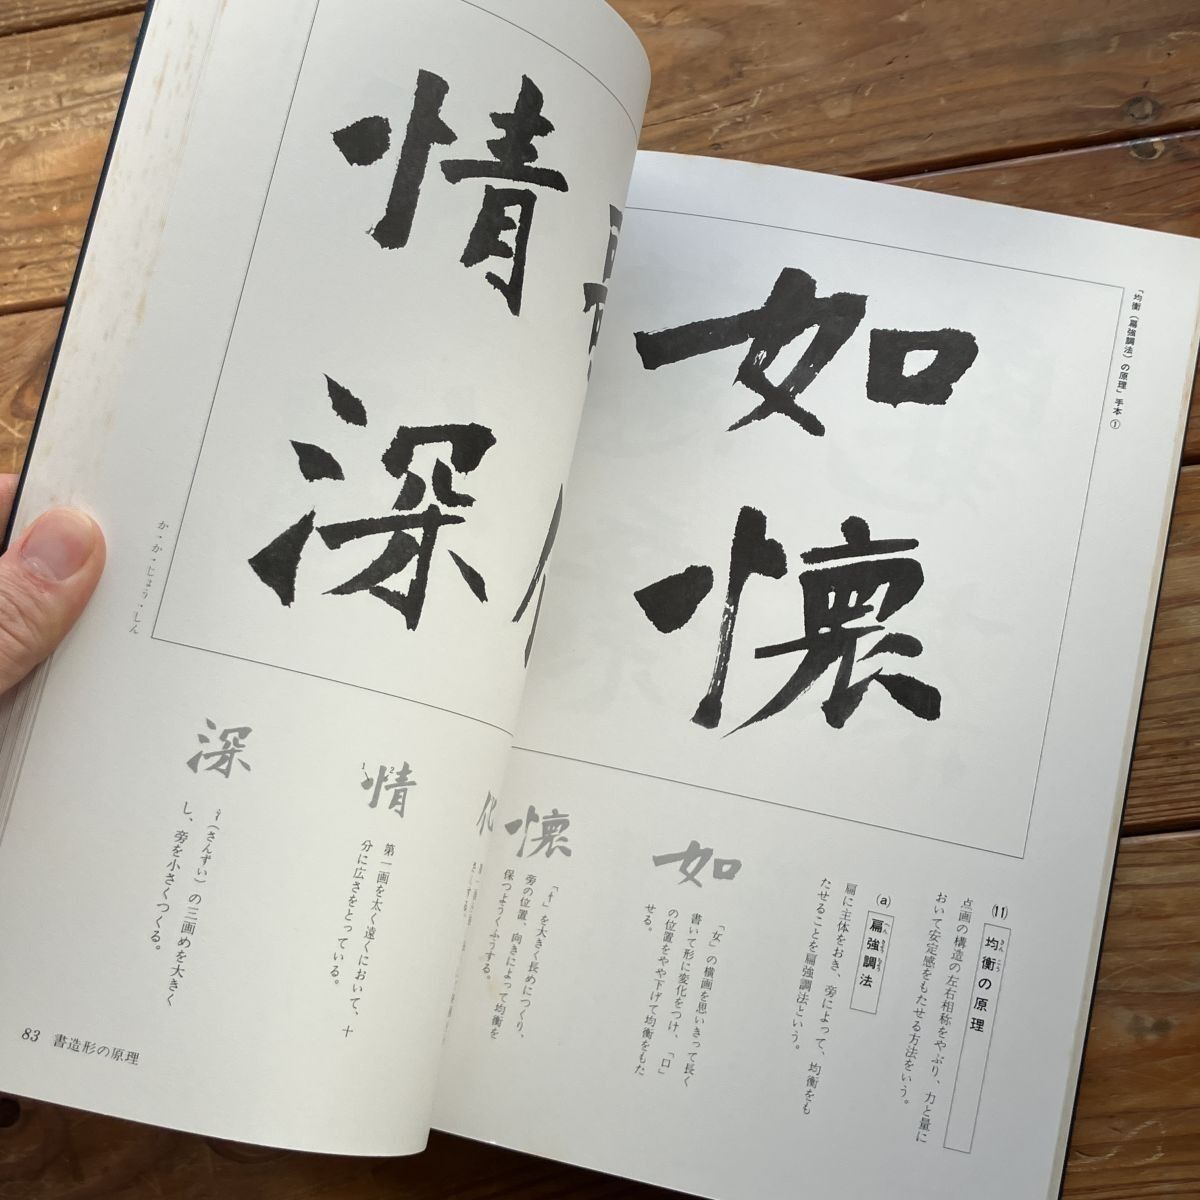 「均衡（扁強調法）の原理」手本①
如
懐
(11)
均衡の原理
きんこう
点画の構造の左右相称をやぶり、力と量に
おいて安定感をもたせる方法をいう。
(a)
扁強調法
へんきょうちょうほう
扁に主体をおき、旁によって、均衡をも
たせることを扁強調法という。
如
「女」の横画を思いきって長く
書いて形に変化をつけ、「口」
の位置をやや下げて均衡をもた
せる。
懐
「忄」を大きく長めにつくり、
旁の位置、向きによって均衡を
保つようくふうする。
情
深
か・か・じょう・しん
化
情
1 2
第一画を太く遠くにおいて、十
分に広さをとっている。
深
氵（さんずい）の三画めを大きく
し、旁を小さくつくる。
83 書造形の原理